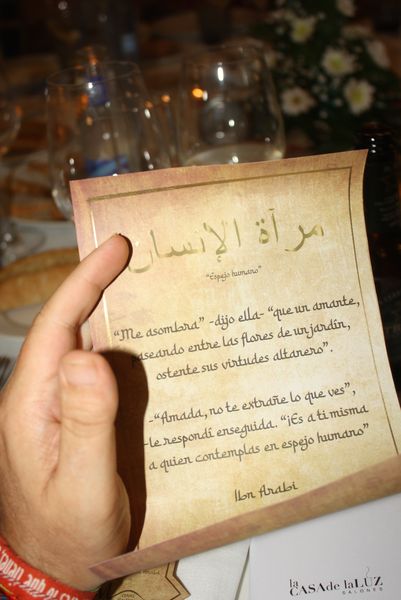 مرآة الإنسان
"Espejo humano"
"Me asombra" -dijo ella- "que un amante,
paseando entre las flores de un jardín,
ostente sus virtudes altanero".
-"Amada, no te extrañe lo que ves",
-le respondí enseguida. "¡Es a ti misma
a quien contemplas en espejo humano"
Ibn Arabi
la CASA de la LUZ
SALONES